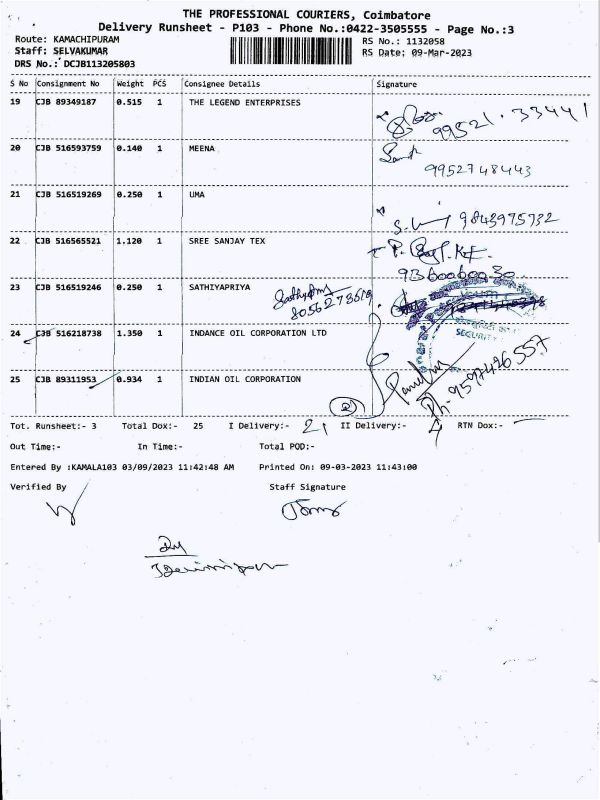 THE PROFESSIONAL COURIERS, Coimbatore
Delivery Runsheet - P103 - Phone No.:0422-3505555 - Page No.:3
Route: KAMACHIPURAM
RS No.: 1132058
Staff: SELVAKUMAR
RS Date: 09-Mar-2023
DRS No.: DCJB113205803
S No Consignment No Weight PCS Consignee Details Signature
19 CJB 89349187 0.515 1 THE LEGEND ENTERPRISES
99521.33441
20 CJB 516593759 0.140 1 MEENA
9952748443
21 CJB 516519269 0.250 1 UMA
9843975732
22 CJB 516565521 1.120 1 SREE SANJAY TEX
913600600 30
23 CJB 516519246 0.250 1 SATHIYAPRIYA
8056273619
24 CJB 516218738 1.350 1 INDANCE OIL CORPORATION LTD
SECURITY
25 CJB 89311953 0.934 1 INDIAN OIL CORPORATION
Ph. 9597426557
2
Tot. Runsheet:- 3 Total Dox:- 25 I Delivery:- 21 II Delivery:- 4 RTN Dox:-
Out Time:- In Time:- Total POD:-
Entered By :KAMALA103 03/09/2023 11:42:48 AM Printed On: 09-03-2023 11:43:00
Verified By Staff Signature